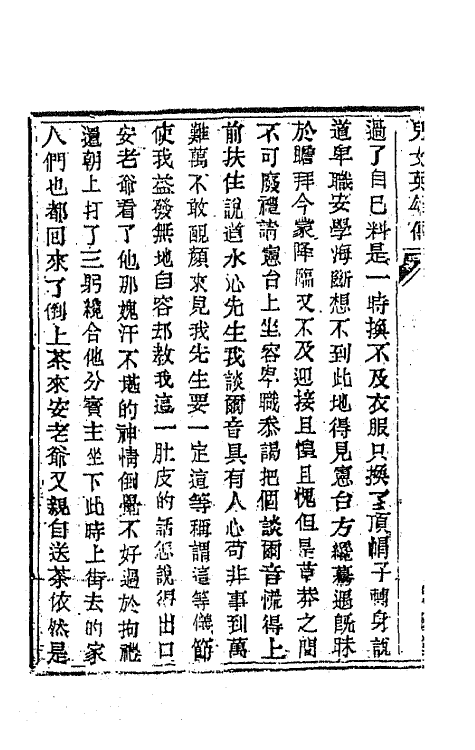 兒女英雄傳
過了自己料是一時換不及衣服只換了頂帽子轉身說
道卑職安學海斷想不到此地得見憲台方纔驀遇旣昧
於瞻拜今蒙降臨又不及迎接且慎且愧但是草莽之間
不可廢禮請憲台上坐容卑職叅謁把個談爾音慌得上
前扶住說道水心先生我談爾音具有人心苟非事到萬
難萬不敢靦顏來見我先生要一定這等稱謂這等儀節
使我益發無地自容却教我這一肚皮的話怎說得出口
安老爺看了他那媿汗不堪的神情倒覺不好過於拘禮
還朝上打了三躬纔合他分賓主坐下此時上街去的家
人們也都回來了倒上茶來安老爺又親自送茶依然是